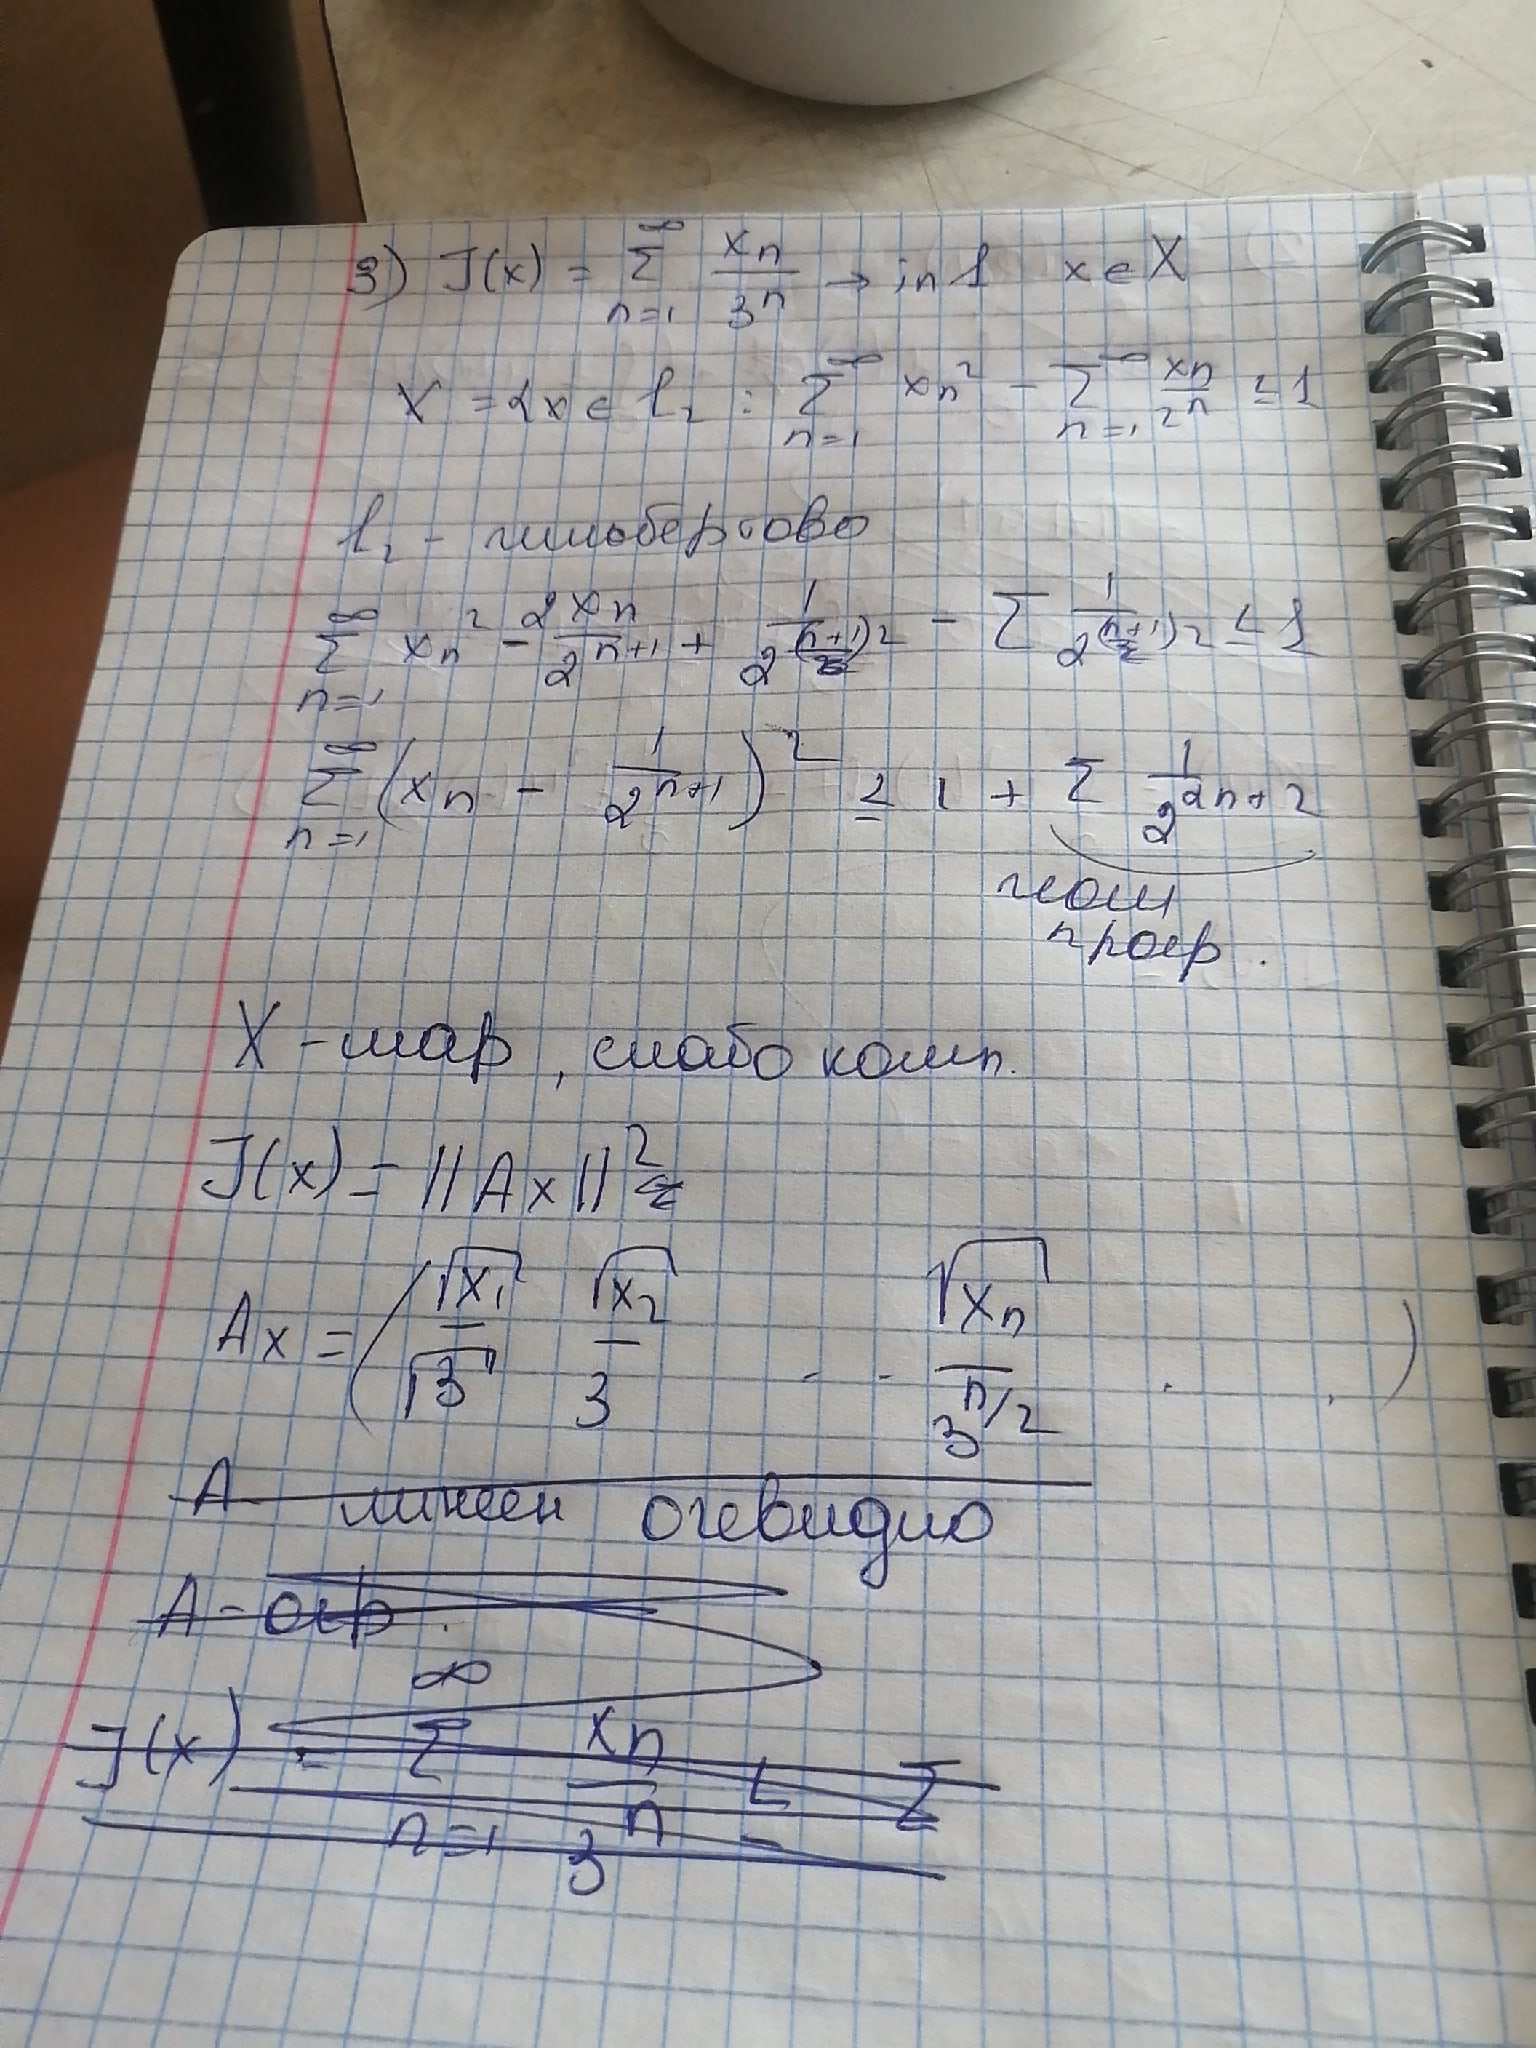 3) J(x) = ∑_{n=1}^{∞} x_n / 3^n → inf x ∈ X
X = {x ∈ l_2 : ∑_{n=1}^{∞} x_n^2 - ∑_{n=1}^{∞} x_n / 2^n ≤ 1
l_2 - гильбертово
∑_{n=1}^{∞} x_n^2 - 2 x_n / 2^{n+1} + 1 / 2^{(n+1)2} - ∑ 1 / 2^{(n+1)2} ≤ 1
∑_{n=1}^{∞} (x_n - 1 / 2^{n+1})^2 ≤ 1 + ∑ 1 / 2^{2n+2}
геом
прогр.
X - шар, слабо комп.
J(x) = ||Ax||^2
Ax = (√x_1 / √3 √x_2 / 3 - - √x_n / 3^{n/2} . . )
A линеен очевидно
A - огр.
J(x) = ∑_{n=1}^{∞} x_n / 3^n ≤ ∑